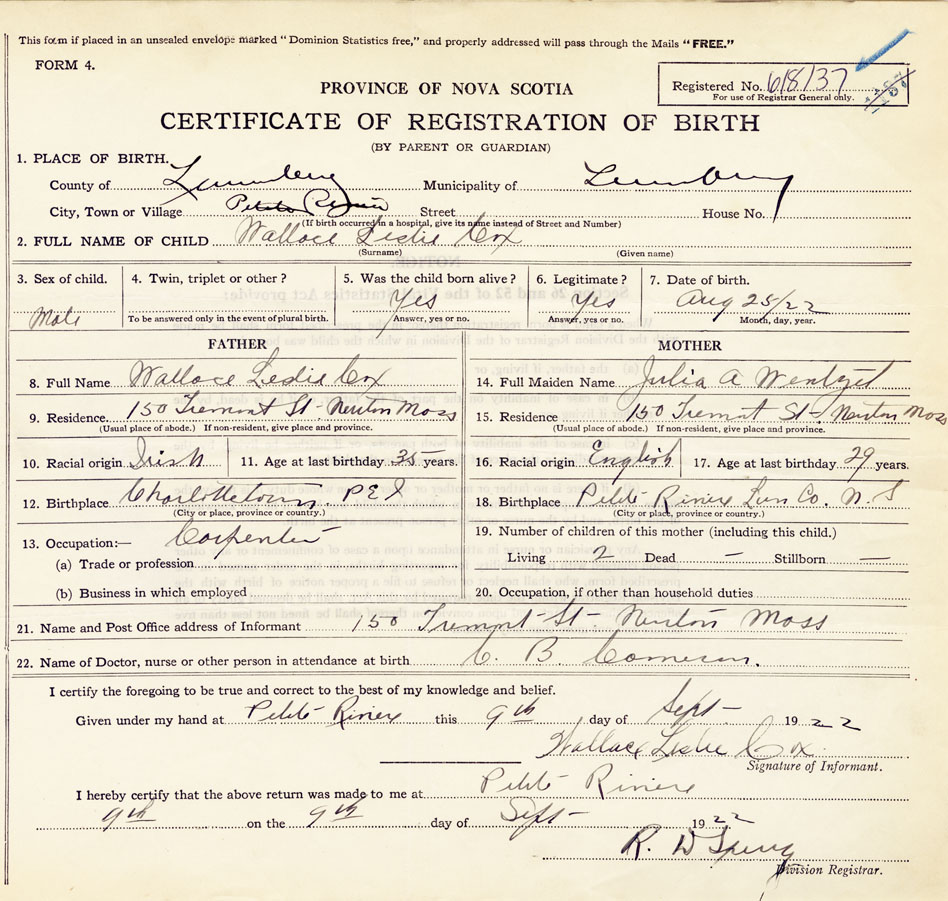 This form if placed in an unsealed envelope marked “Dominion Statistics free,” and properly addressed will pass through the Mails “FREE.”
FORM 4.
Registered No. 618137
For use of Registrar General only.
PROVINCE OF NOVA SCOTIA
CERTIFICATE OF REGISTRATION OF BIRTH
(BY PARENT OR GUARDIAN)
1. PLACE OF BIRTH.
County of Lunenburg Municipality of Lunenburg
City, Town or Village Petite Riviere Street House No.
(If birth occurred in a hospital, give its name instead of Street and Number)
2. FULL NAME OF CHILD Wallace Leslie Cox
(Surname) (Given name)
3. Sex of child. 4. Twin, triplet or other? 5. Was the child born alive? 6. Legitimate? 7. Date of birth.
Male Yes Yes Aug 25/22
To be answered only in the event of plural birth. Answer, yes or no. Answer, yes or no. Month, day, year.
FATHER MOTHER
8. Full Name Wallace Leslie Cox 14. Full Maiden Name Julia A Wentzel
9. Residence. 150 Tremont St - Newton Mass 15. Residence 150 Tremont St - Newton Mass
(Usual place of abode.) If non-resident, give place and province. (Usual place of abode.) If non-resident, give place and province.
10. Racial origin Irish 11. Age at last birthday 35 years. 16. Racial origin English 17. Age at last birthday 29 years.
12. Birthplace Charlottetown P E I 18. Birthplace Petite Riviere Lun Co. N. S
(City or place, province or country.) (City or place, province or country.)
13. Occupation:— Carpenter 19. Number of children of this mother (including this child.)
(a) Trade or profession Living 2 Dead — Stillborn —
(b) Business in which employed 20. Occupation, if other than household duties
21. Name and Post Office address of Informant 150 Tremont St - Newton Mass
22. Name of Doctor, nurse or other person in attendance at birth C. B. Cameron.
I certify the foregoing to be true and correct to the best of my knowledge and belief.
Given under my hand at Petite Riviere this 9th day of Sept - 1922
Wallace Leslie Cox
Signature of Informant.
I hereby certify that the above return was made to me at Petite Riviere
9th on the 9th day of Sept - 1922
R. W
Division Registrar.